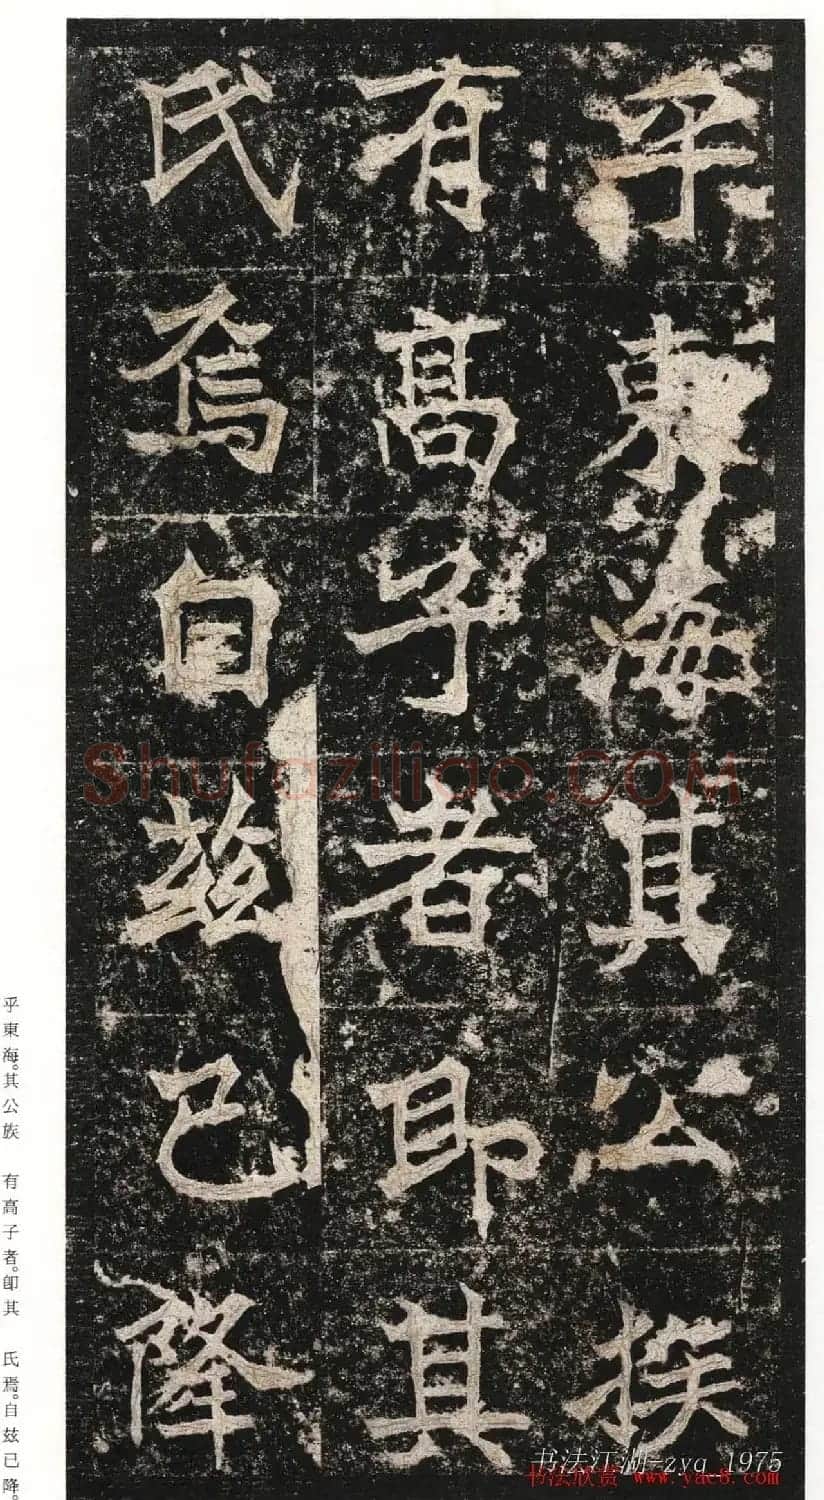 乎東海其公族
有高子者即其
氏焉自玆已降
乎東海。其公族 有高子者。卽其 氏焉。自玆已降。
Shufaziliao.COM
书法江湖-zyq_1975
书法欣赏 www.yac8.com